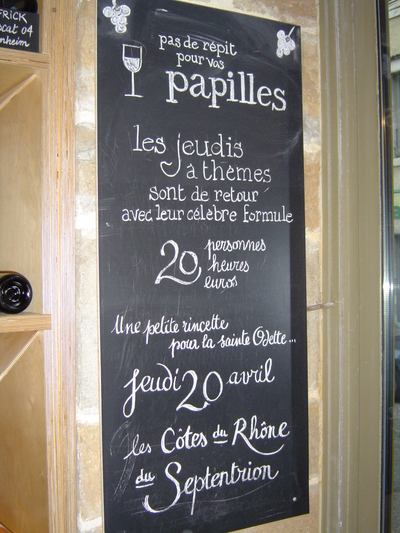 FRICK
cat 04
nheim
pas de répit
pour vos
papilles
les jeudis
à thèmes
sont de retour
avec leur célèbre formule
20 personnes
heures
euros
Une petite rincette
pour la sainte Odette...
jeudi 20 avril
les Côtes du Rhône
du Septentrion